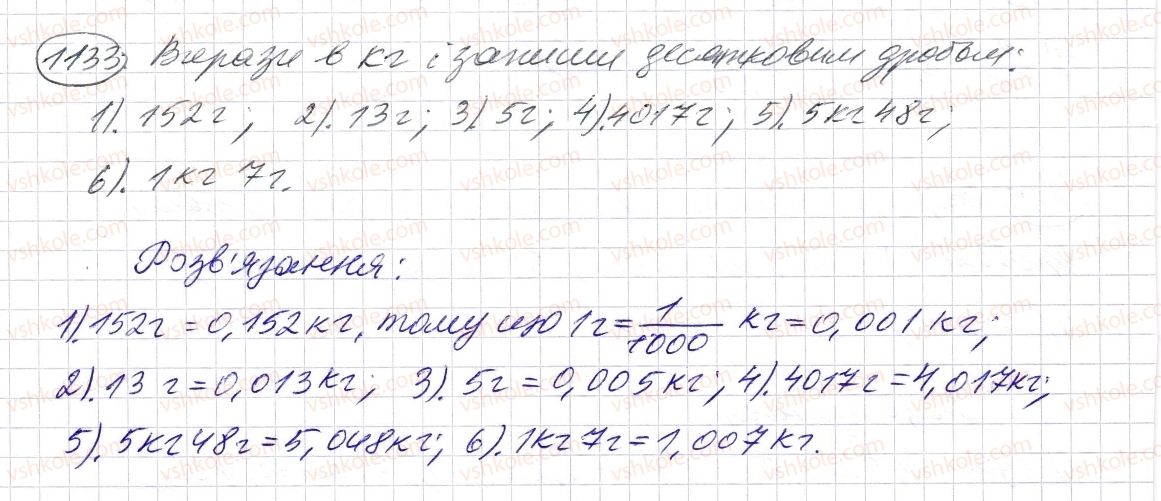 1133) Вирази в кг і запиши десятковим дробом:
1). 152г; 2). 13г; 3). 5г; 4). 4017г; 5). 5кг 48г;
6). 1кг 7г.
Розв'язання:
1). 152г = 0,152кг, тому що 1г = 1/1000 кг = 0,001 кг;
2). 13 г = 0,013кг; 3). 5г = 0,005кг; 4). 4017г = 4,017кг;
5). 5кг 48г = 5,048кг; 6). 1кг 7г = 1,007кг.
vshkole.com